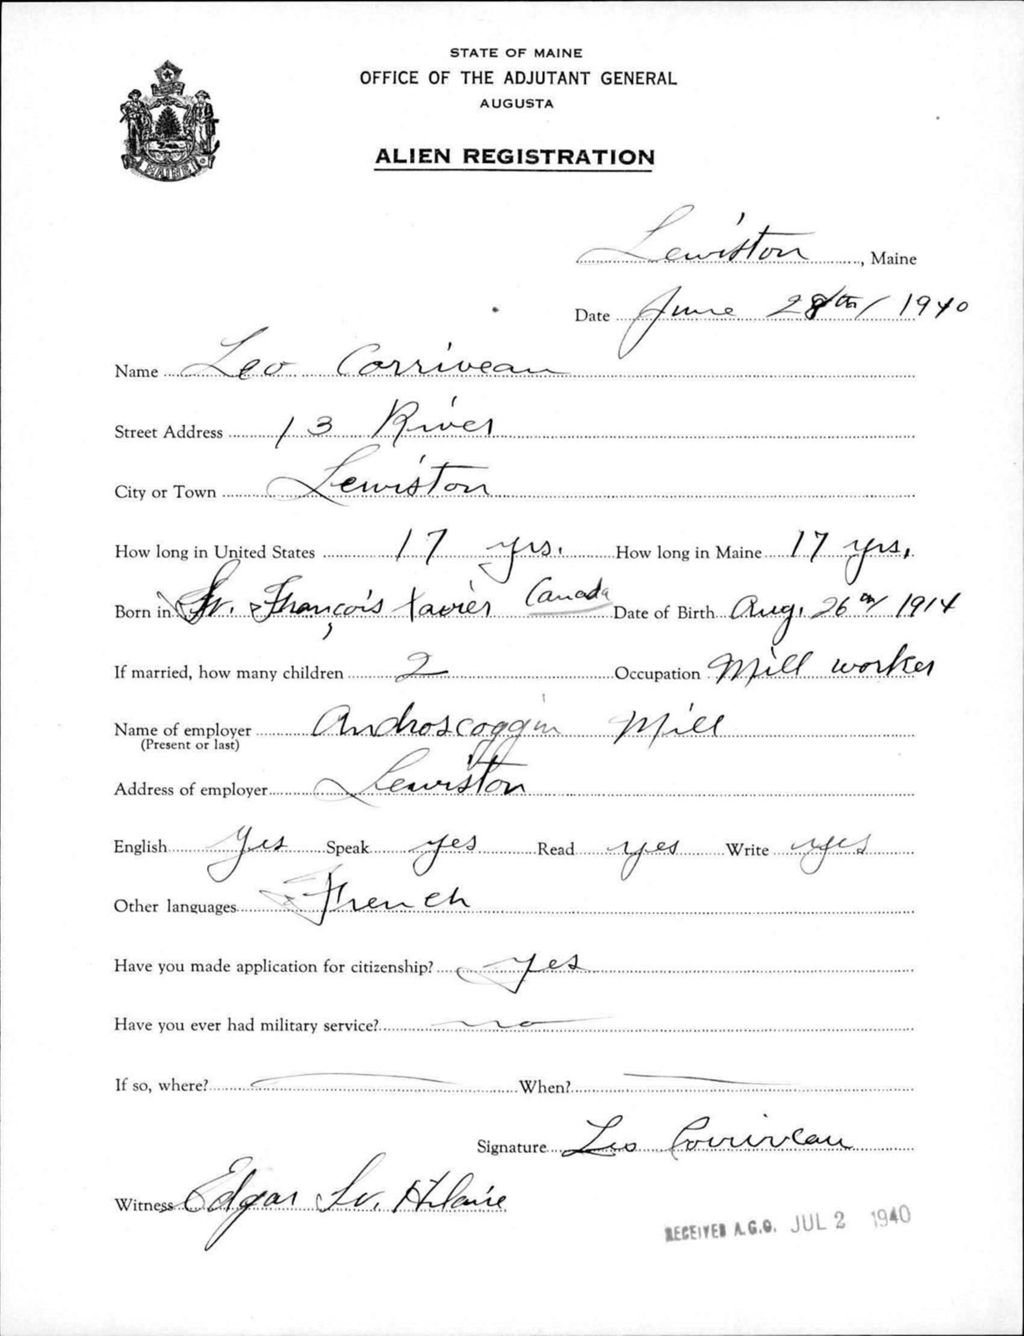 STATE OF MAINE
OFFICE OF THE ADJUTANT GENERAL
AUGUSTA
ALIEN REGISTRATION
Lewiston, Maine
Date June 28th / 1940
Name Leo Corriveau
Street Address 13 River
City or Town Lewiston
How long in United States 17 yrs. How long in Maine 17 yrs.
Born in St. François Xavier Canada Date of Birth Aug. 26th / 1914
If married, how many children 2 Occupation Mill worker
Name of employer Androscoggin Mill
(Present or last)
Address of employer Lewiston
English Yes Speak yes Read yes Write yes
Other languages French
Have you made application for citizenship? yes
Have you ever had military service? no
If so, where? When?
Signature Leo Corriveau
Witness Edgar St. Hilaire
RECEIVED A.G.O. JUL 2 1940